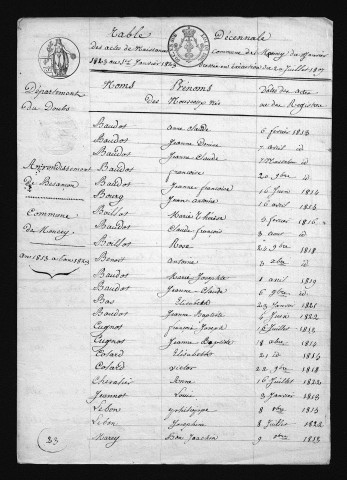 Table Décennale
des actes de Naissance Commune de Moncey du 1er Janvier
1813 au 1er Janvier 1823 dressée en exécution du 20 Juillet 1807
Département
du Doubs
Arrondissement
de Besançon
Commune
de Moncey
an 1813 à l'an 1823
Noms Prénoms Dates des Actes
des Nouveaux Nés ou des Registres
Baudot anne claude 6 fevrier 1813
Baudot Jeanne 7 avril id
Baudot Jeanne Claude id
Baudot francoise 20 9bre id
Baudot Jeanne francoise 16 Juin 1814
Bourg Jean antoine 16 avril 1814
Boillot Marie 3 fevrier 1816
Baudot Claude francois 3 aout id
Boillot Rose 24 9bre 1818
Benoit Antoine 3 id
Baudot Marie Josephte 1 avril 1819
Baudot Jeanne Claude 6 id
Bas Elisabeth 23 Janvier 1821
Baudot Jeanne Baptiste 4 Juin 1822
Cugnot francois Joseph 12 Juillet 1813
Cugnot Jeanne Baptiste 18 1814
Colard Elisabeth 21 id 1814
Colard victor 22 9bre 1818
Chevalier Anne 16 Juillet 1822
Jeannot Louis 3 Janvier 1813
Lebon philippe 8 1813
Lebon Josephine 8 Juillet 1822
Marcy Bon Joachin 9 1813
23